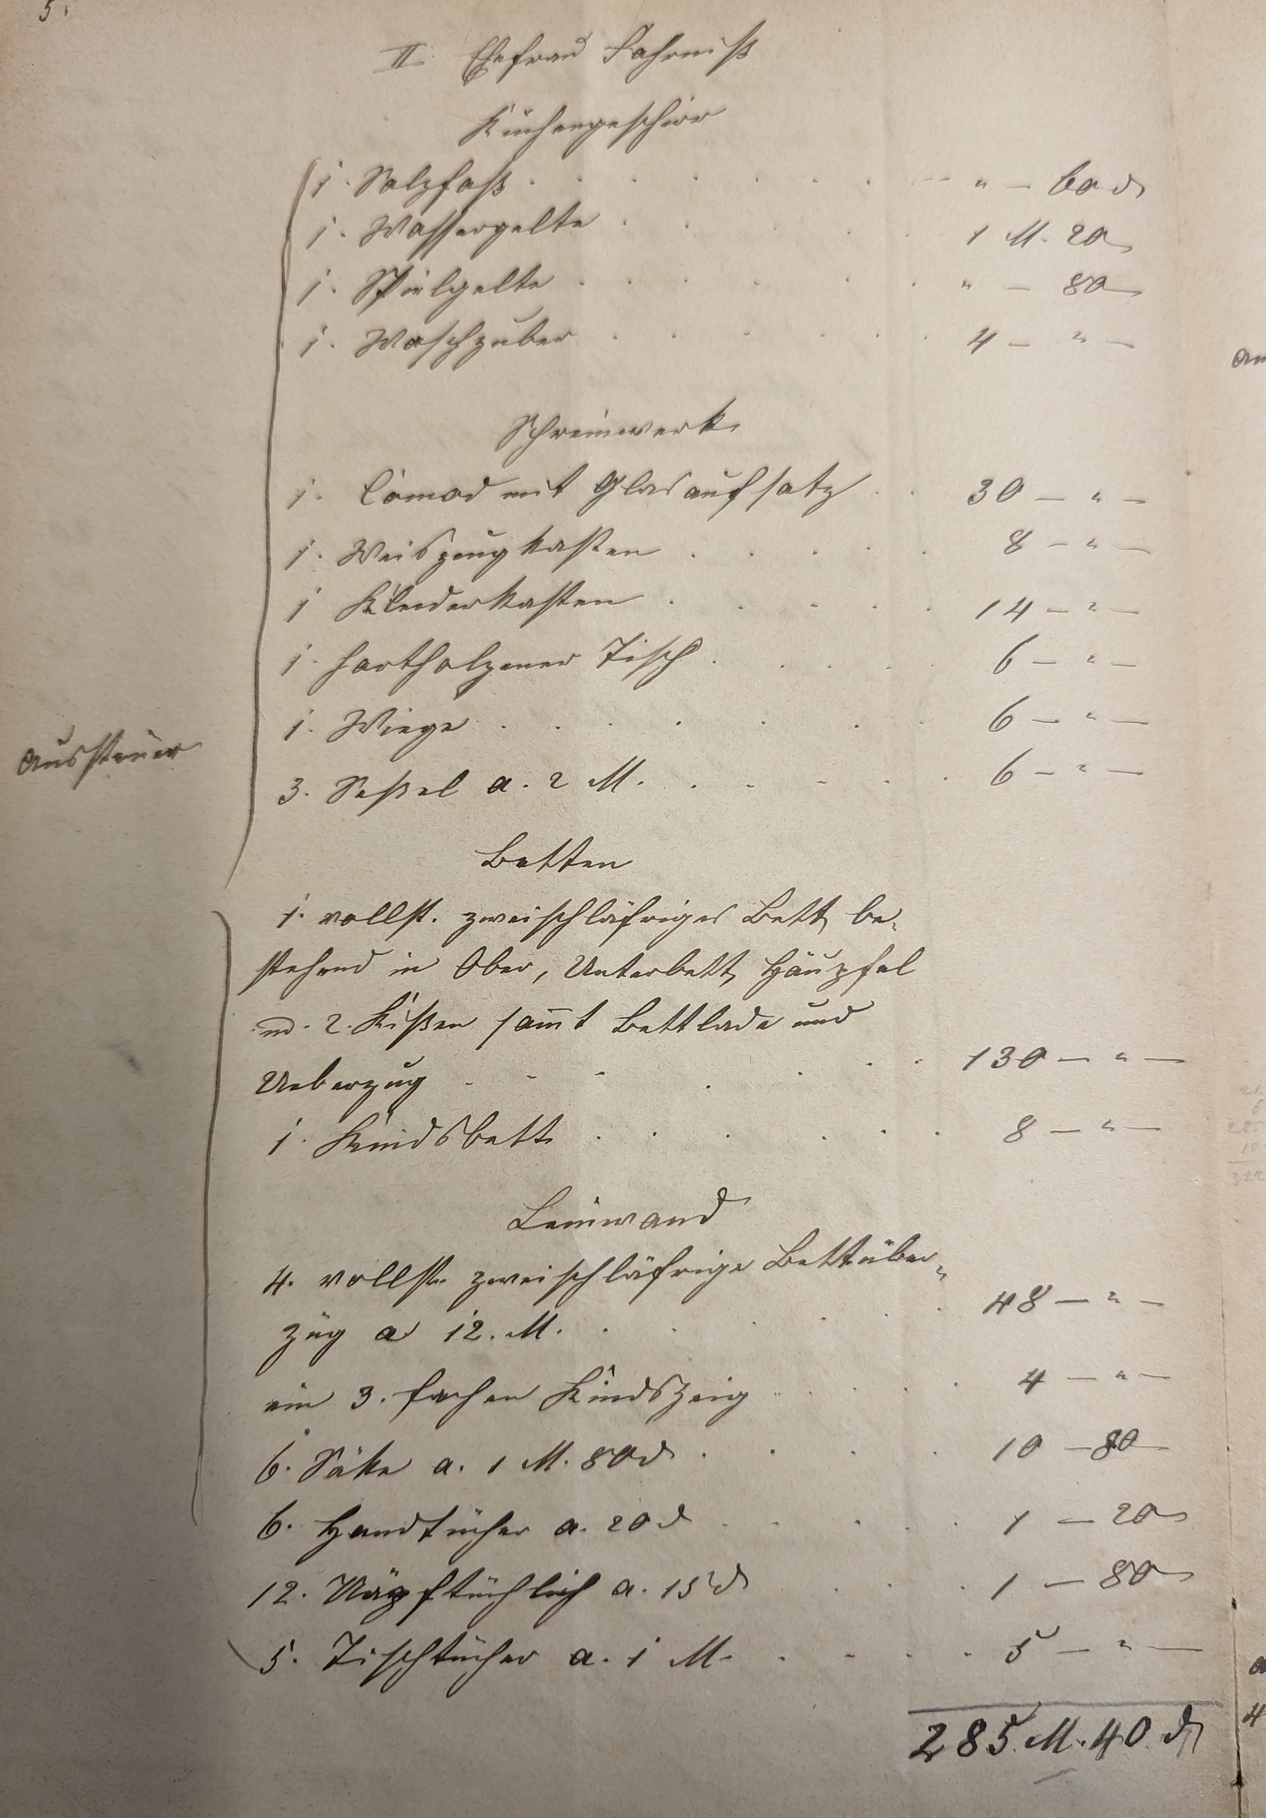 5.
II. Ehefrau Fahrniß
Küchengeschirr
1. Salzfaß . . . . . . . . " — 60 ₰
1. Wassergelte . . . . . 1 M. 20
1. Spielgelte . . . . . . " — 80
1. Waschzuber . . . . . 4 — " —
Schreinwerk
1. Comod mit Glasaufsatz . . 30 — " —
1. Weiszeugkasten . . . . . 8 — " —
1 Kleiderkasten . . . . . 14 — " —
1. hartholzener Tisch . . . . 6 — " —
1. Wiege . . . . . . . 6 — " —
Aussteuer
3. Seßel a. 2 M. . . . . . 6 — " —
Betten
1. vollst. zweischläfriges Bett be-
stehend in Ober, Unterbett, Häupfel
u. 2. Kißen sammt Bettlade und
Ueberzug . . . . . . 130 — " —
1. Kindsbett . . . . . . 8 — " —
Leinwand
4. vollst. zweischläfrige Bettüber-
züg a 12. M. . . . . . 48 — " —
ein 3. fachen Kindszeig . . . . 4 — " —
6. Säke a. 1 M. 80 ₰ . . . . 10 — 80
6. Handtücher a. 20 ₰ . . . . 1 — 20
12. a. 15 ₰ . . . . 1 — 80
5. Tischtücher a. 1 M. . . . . 5 — " —
285. M. 40 ₰